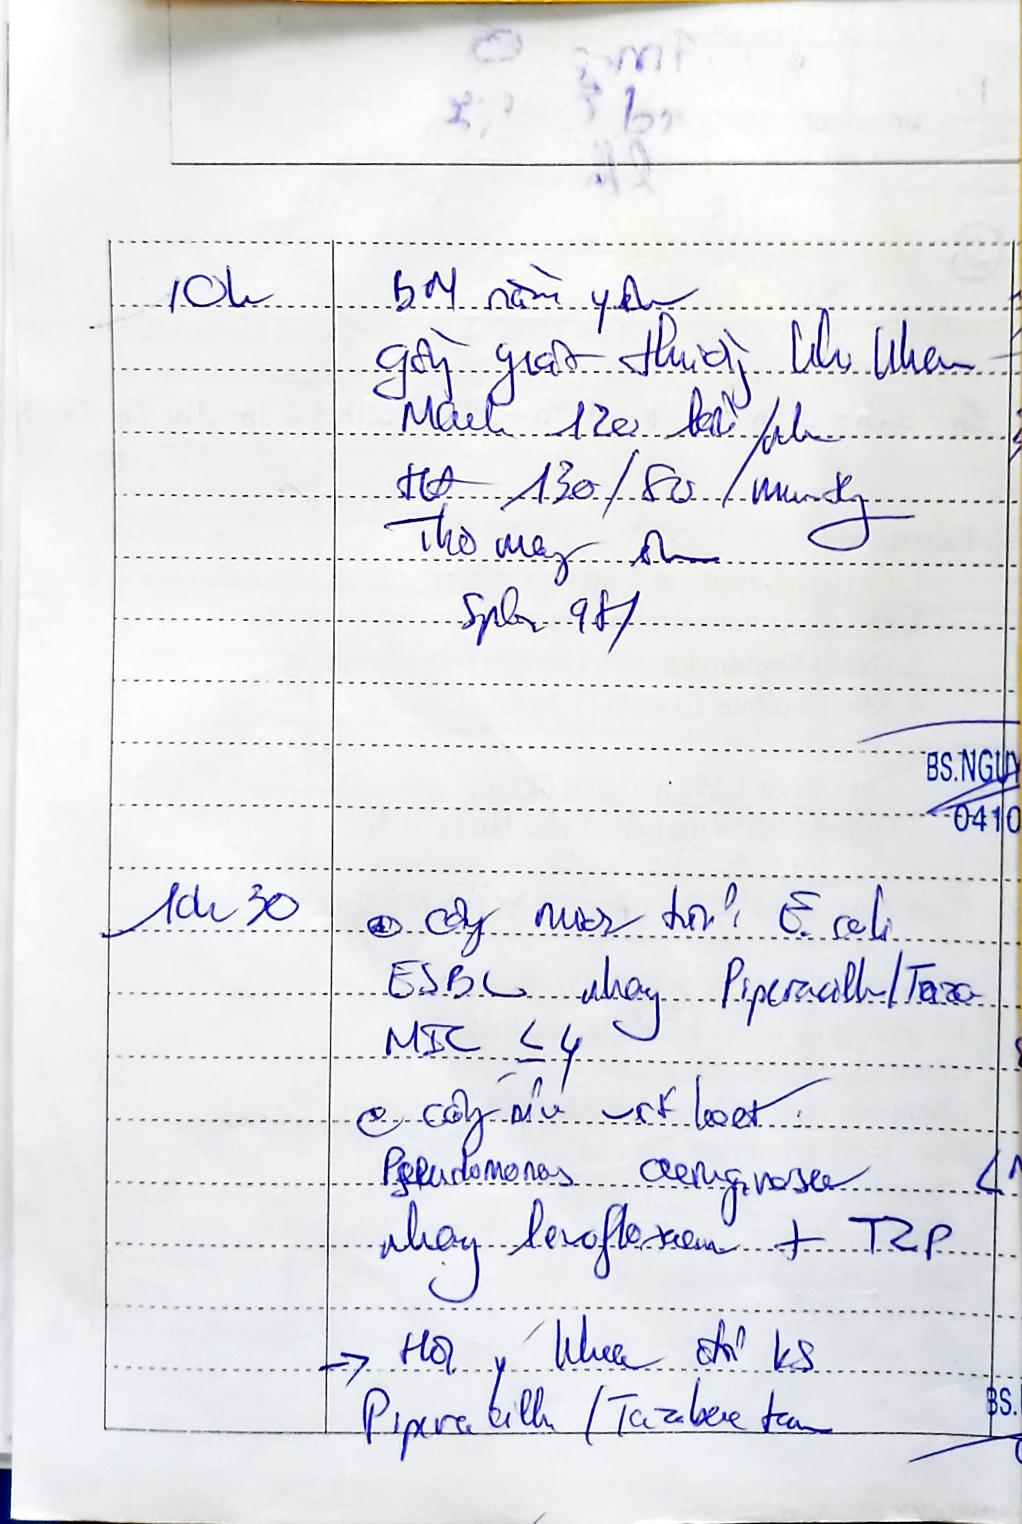 10h
BN nằm yên
gồng giật thưa, khi khám
Mạch 120 lần/ph
HA 130/80 /mmHg
Thở máy êm
SpO2 98%
BS.NGUY
0410
10h30
cấy máu E coli
ESBL nhạy Piperacillin/Tazo
MIC ≤ 4
cấy vết loét:
Pseudomonas aeruginosa
nhạy levofloxacin + TZP
→ Hội ý khoa đổi KS
BS.
Piperacillin/Tazobactam